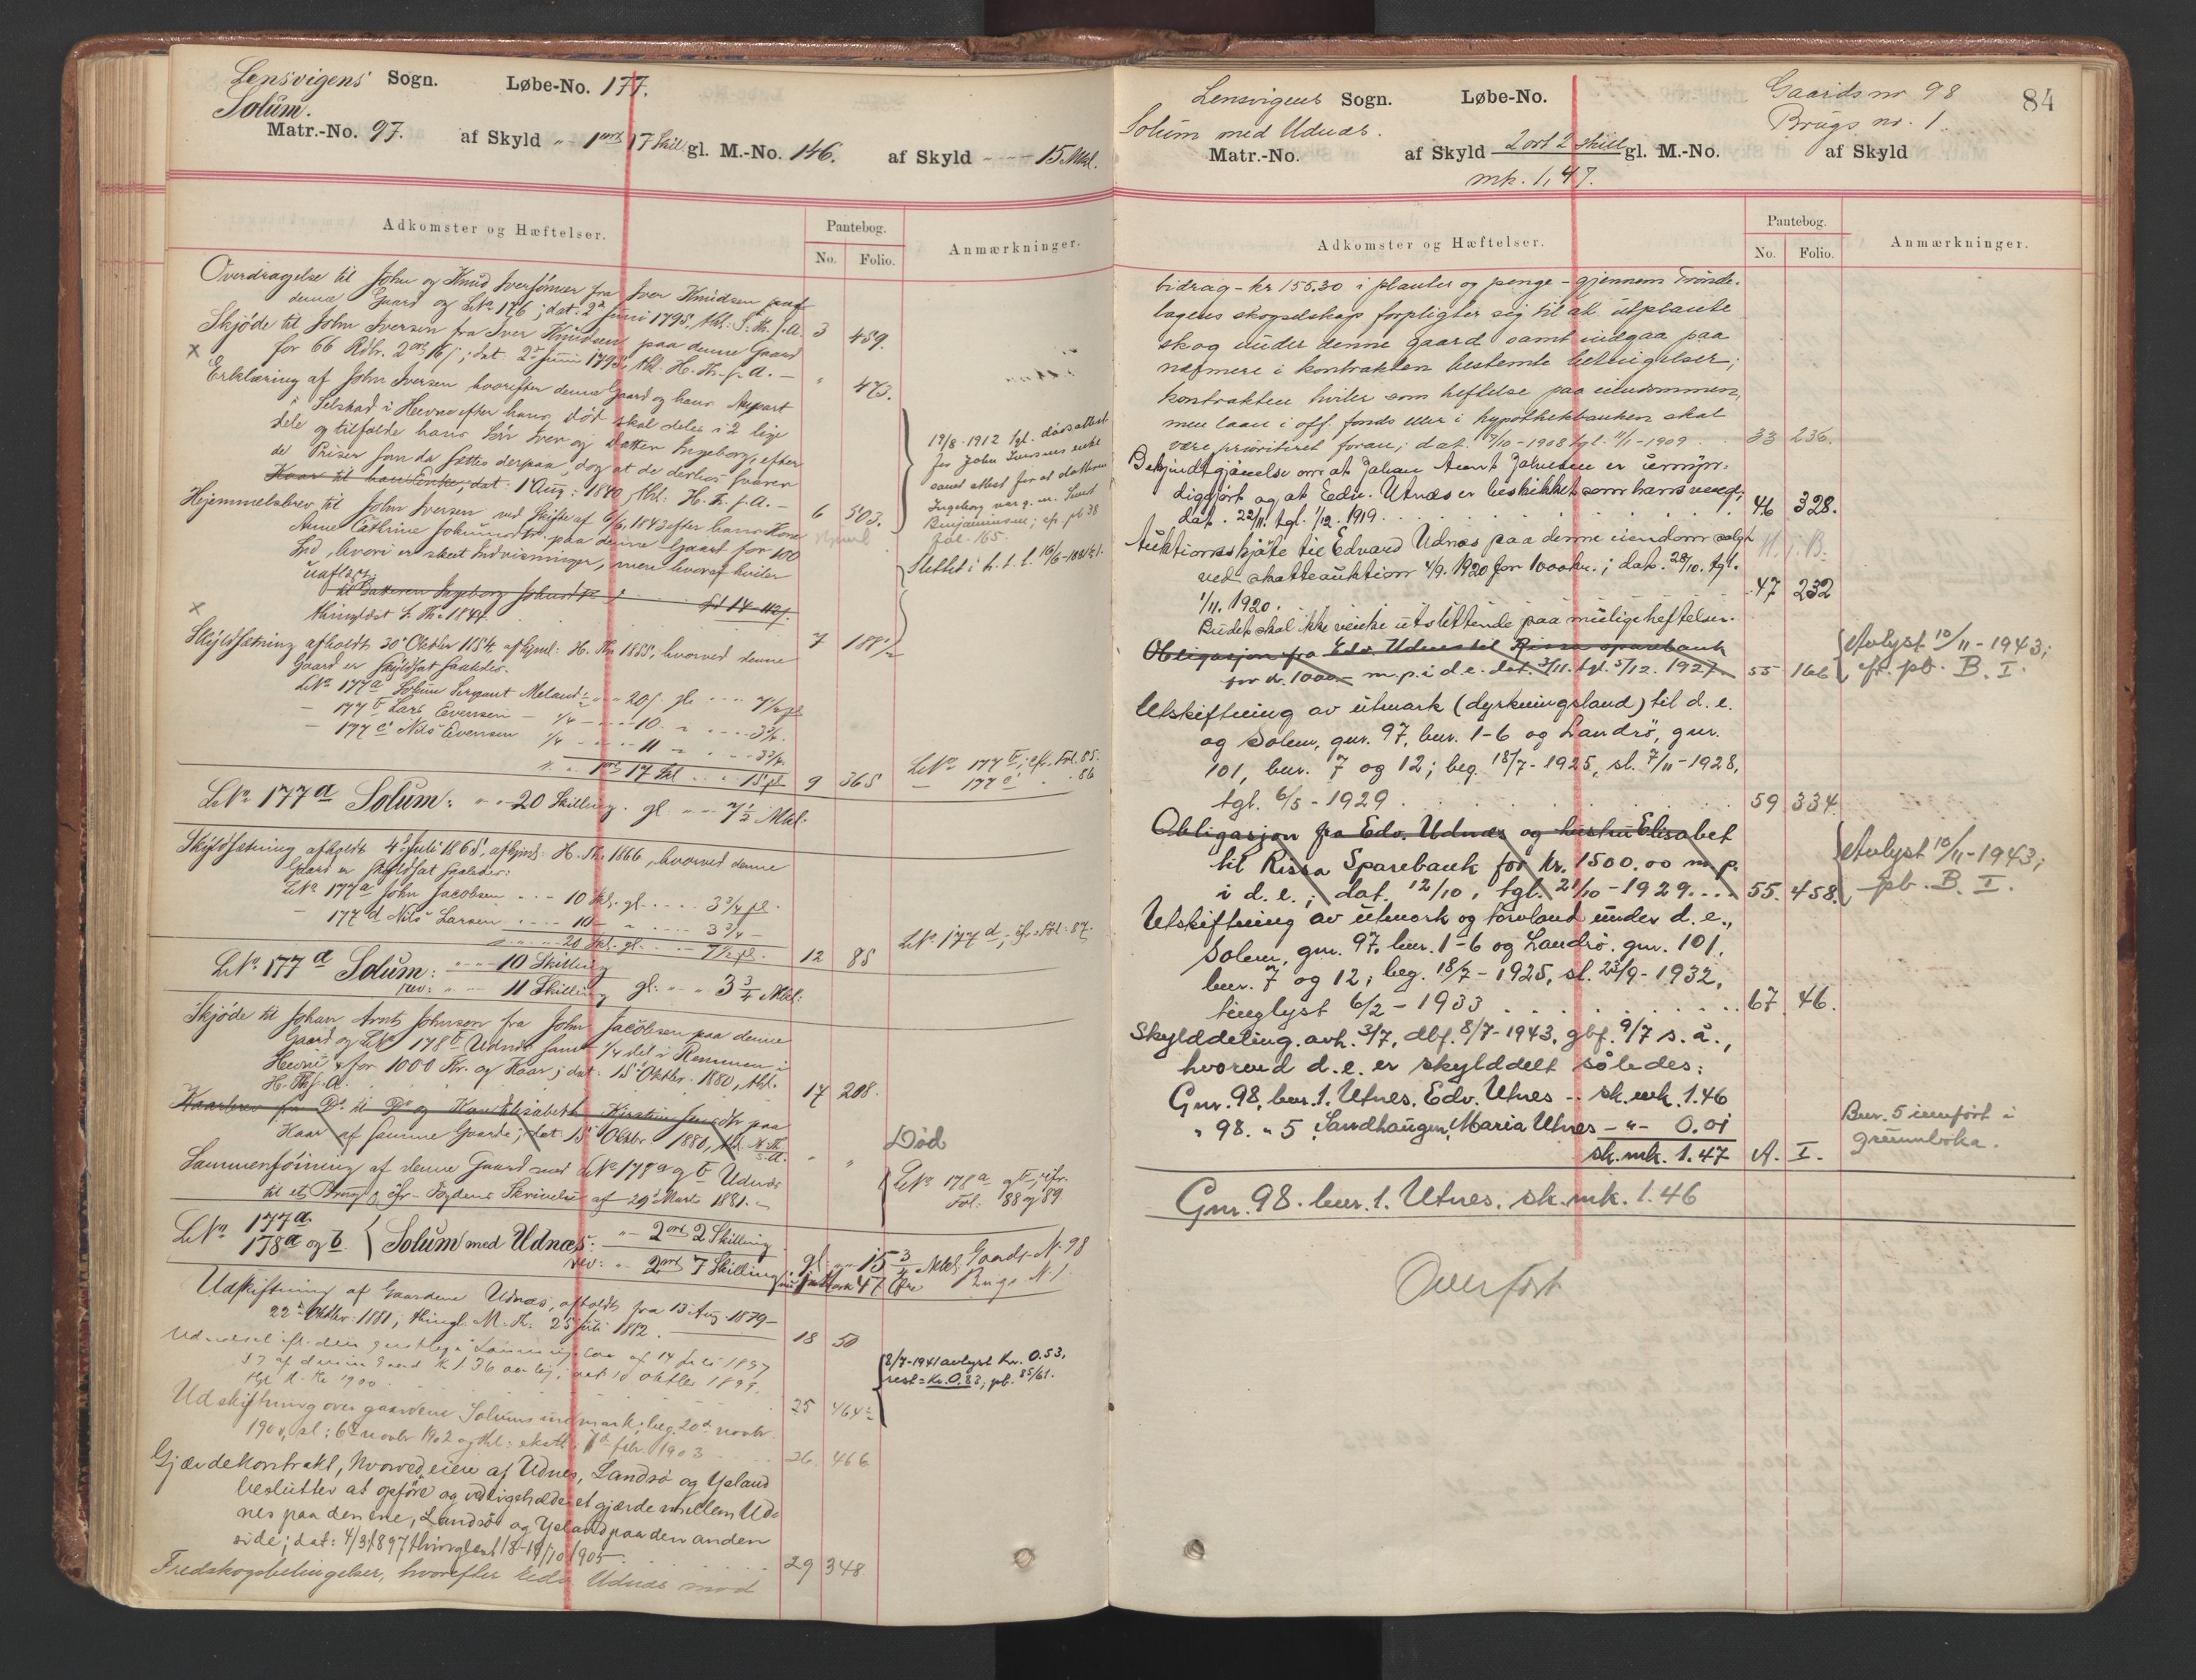 Lensvigens Sogn. Løbe-No. 177.
Solum.
Matr.-No. 97. af Skyld " - 1 ort 17 Skil gl. M.-No. 146. af Skyld - - - - 15 Mkl.
Adkomster og Hæftelser.
Pantebog.
No. Folio.
Anmærkninger.
Overdragelse til John og Knud Iversønner fra Iver Knudsen paa
denne Gaard og LNo 176; dat. 2 Juni 1795, thl. S. Th. s. A. 3 459.
Skjøde til John Iversen fra Iver Knudsen paa denne Gaard
for 66 Rdlr. 2 ort 16 s; dat. 2 Juni 1795, thl. H. Th. s. A. - " 473.
Erklæring af John Iversen hvorefter denne Gaard og hans Anpart
i Selskad i Hevne efter hans Død skal deles i 2 lige
dele og tilfalde hans Søn Iver og Datter Ingeborg, efter
de Priser som da sættes derpaa, dog at de derhos svarer
Kaar til hans Enke; dat. 1 Aug: 1840, thl. H. T. s. A. - 6 503.
19/8-1912 tgl. dødsattest
for John Iversens enke
samt attest for at datteren
Ingeborg var g. m. Knut
Benjaminsen; cfr. pb 38
fol. 165.
Hjemmelsbrev til John Iversen ved Skifte af 6/6 1843 efter hans Kone
Anne Cathrine Johnsdtr. paa denne Gaard for 100
Spd, hvori er skeet Indvisninger, mere hvoraf hviler
uafløst:
til Datteren Ingeborg Johnsdtr. Spd 14 - 112 s.
thinglæst S. Th. 1844. 7 188 1/2
Slettet i h. t. l.
Skyldsætning afholdt 30 Oktober 1854, afhjml: H. Th. 1855, hvorved denne
Gaard er skyldsat saaledes.
LNo 177a Solum Sergeant Meland 1/2 - - 20 s. gl. - - - 7 1/2 pl
- 177b Lars Evensen - 1/4 - - - 10 - " - - - 3 3/4.
- 177c Nils Evensen 1/4 - - - 11 - - - - 3 3/4
" - 1 ort 17 skl - - - 15 pl 9 365
LNo 177b; cfr. Fol. 85.
- 177c - " 86
LNo 177a Solum: " - - 20 Skilling. gl " - - 7 1/2 Mkl.
Skyldsætning afholdt 4 Juli 1865, afhjml: H. Th. 1866, hvorved denne
Gaard er skyldsat saaledes:
LNo 177a John Jacobsen - - - 10 Skl. gl. - - - 3 3/4 pl.
- 177d Nils Larsen - - - - 10 - " - - - 3 3/4 -
" - - 20 Skl. gl. - - - 7 1/2 pl. 12 85
LNo 177d; cfr. Fol: 87.
LNo 177a Solum: " - - 10 Skilling
rev: " - - 11 Skilling gl: " - - 3 3/4 Mkl:
Skjøde til Johan Arnt Johnsen fra John Jacobsen paa denne
Gaard og LNo 178b Udnæs samt 1/4 del i Remmen i
Hevne for 1000 Kr. og Kaar; dat. 15 Oktbr. 1880, thl.
H. Th. s. A. 17 208.
Kaarbrev fra Do til Do og Kone Elisabeth Kirstine Jensdtr paa
Kaar af samme Gaarde; dat 15 Oktbr 1880, thl. H. Th.
s. A. " "
Død
Sammenføining af denne Gaard med LNo 178a og b Udnæs
til et Brug, cfr. Fogdens Skrivelse af 29 Marts 1881. -
LNo 178a og b, cfr.
Fol: 88 og 89
LNo 177a
178a og b { Solum med Udnæs: " - 2 ort 2 Skilling
rev: " - 2 ort 7 Skilling gl. " - 15 3/4 Mkl. Gaards-N. 98
ny skyld Mark 47 Øre Brugs N 1.
Udskiftning af Gaardene Udnæs, afholdt fra 13 Aug 1879 -
22 Oktober 1881; thingl. M. Th. 25 Juli 1882. 18 50
af 14 juli 1897
aarlig, dat 10 oktbr 1899,
1900. 25 464
8/7-1941 avlyst Kr. 0.53,
rest = Kr. 0.83; pb. 85/61.
Udskiftning over gaardene Solums indmark, beg. 20d novbr.
1900, sl: 6te novbr 1902 og thl: 1d febr. 1903 - - - 26 466
Gjærdekontrakt, hvorved eiere af Udnes, Landrø og Yeland
beslutter at opføre og vedligeholde et gjærde mellem Ud-
nes paa den ene, Landrø og Yeland paa den anden
side; dat: 4/3 1897 thinglæst 18-19/10 1905 29 348
Fredskogsbetingelser, hvorefter Edv. Udnæs mod
Lensvigens Sogn. Løbe-No. Gaards nr 98 84
Solum med Udnæs. Brugs nr. 1.
Matr.-No. af Skyld 2 ort 2 skill gl. M.-No. af Skyld
mk. 1,47.
Adkomster og Hæftelser.
Pantebog.
No. Folio.
Anmærkninger.
bidrag - kr 155.30 i planter og penge - gjennem Trønde-
lagens skogselskap forpligter sig til at utplante
skog under denne gaard samt indgaa paa
nærmere i kontrakten bestemte betingelser;
kontrakten hviler som heftelse paa eiendommen,
men laan i off. fonds eller i hypothekbanken skal
være prioritert foran; dat. 9/10-1908 tgl. 11/1-1909. 33 236.
Bekjendtgjørelse om at Johan Arnt Johnsen er umyn-
diggjort og at Edv. Utnæs er beskikket som hans verge;
dat. 22/11. tgl. 1/12. 1919. 46 328.
Auktionsskjøte til Edvard Udnæs paa denne eiendom solgt N. B.
ved skatteauktion 4/9. 1920 for 1000 kr.; dat. 28/10. tgl.
1/11. 1920. 47 232
Budet skal ikke virke utslettende paa mulige heftelser.
Obligasjon fra Edv. Udnes til Rissa sparebank
for kr. 1000.- m.p. i d. e. dat. 3/11. tgl. 5/12. 1927. 55 166
Avlyst 10/11-1943;
cfr. pb. B. I.
Utskiftning av utmark (dyrkningsland) til d. e.
og Solem, gnr. 97, bnr. 1-6 og Landrö, gnr.
101, bnr. 7 og 12; beg. 18/7-1925, sl. 7/11-1928,
tgl. 6/5-1929. 59 334.
Obligasjon fra Edv. Udnæs og hustru Elisabet
til Rissa Sparebank for kr. 1500.00 m. p.
i d. e.; dat. 12/10, tgl. 21/10-1929. 55. 458.
Avlyst 10/11-1943;
pb. B. I.
Utskiftning av utmark og torvland under d. e.,
Solem, gnr. 97, bnr. 1-6 og Landrö, gnr. 101,
bnr. 7 og 12; beg. 18/7-1925, sl. 23/9-1932,
tinglyst 6/2-1933 67. 46.
Skylddeling avh. 3/7, dbf. 8/7-1943, gbf. 9/7 s. å.,
hvorved d. e. er skylddelt således:
Gnr. 98, bnr. 1. Utnes. Edv. Utnes - - sk.mk. 1.46
" 98. " 5 Sandhaugen, Maria Utnes - " - 0.01
sk. mk. 1.47 A. I.
Bnr. 5 innført i
grunnboka.
Gnr. 98. bnr. 1. Utnes. sk. mk. 1.46
Overført